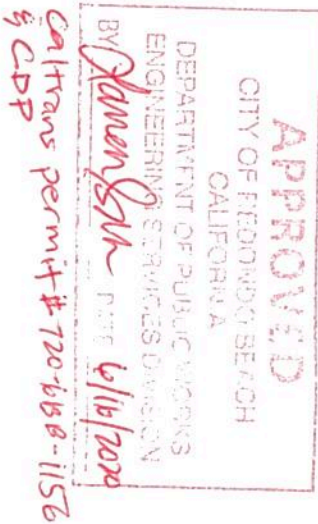 APPROVED
CITY OF REDONDO BEACH
CALIFORNIA
DEPARTMENT OF PUBLIC WORKS
ENGINEERING SERVICES DIVISION
BY DATE 6/16/2020
Caltrans permit # 720-668-1156
& CDP